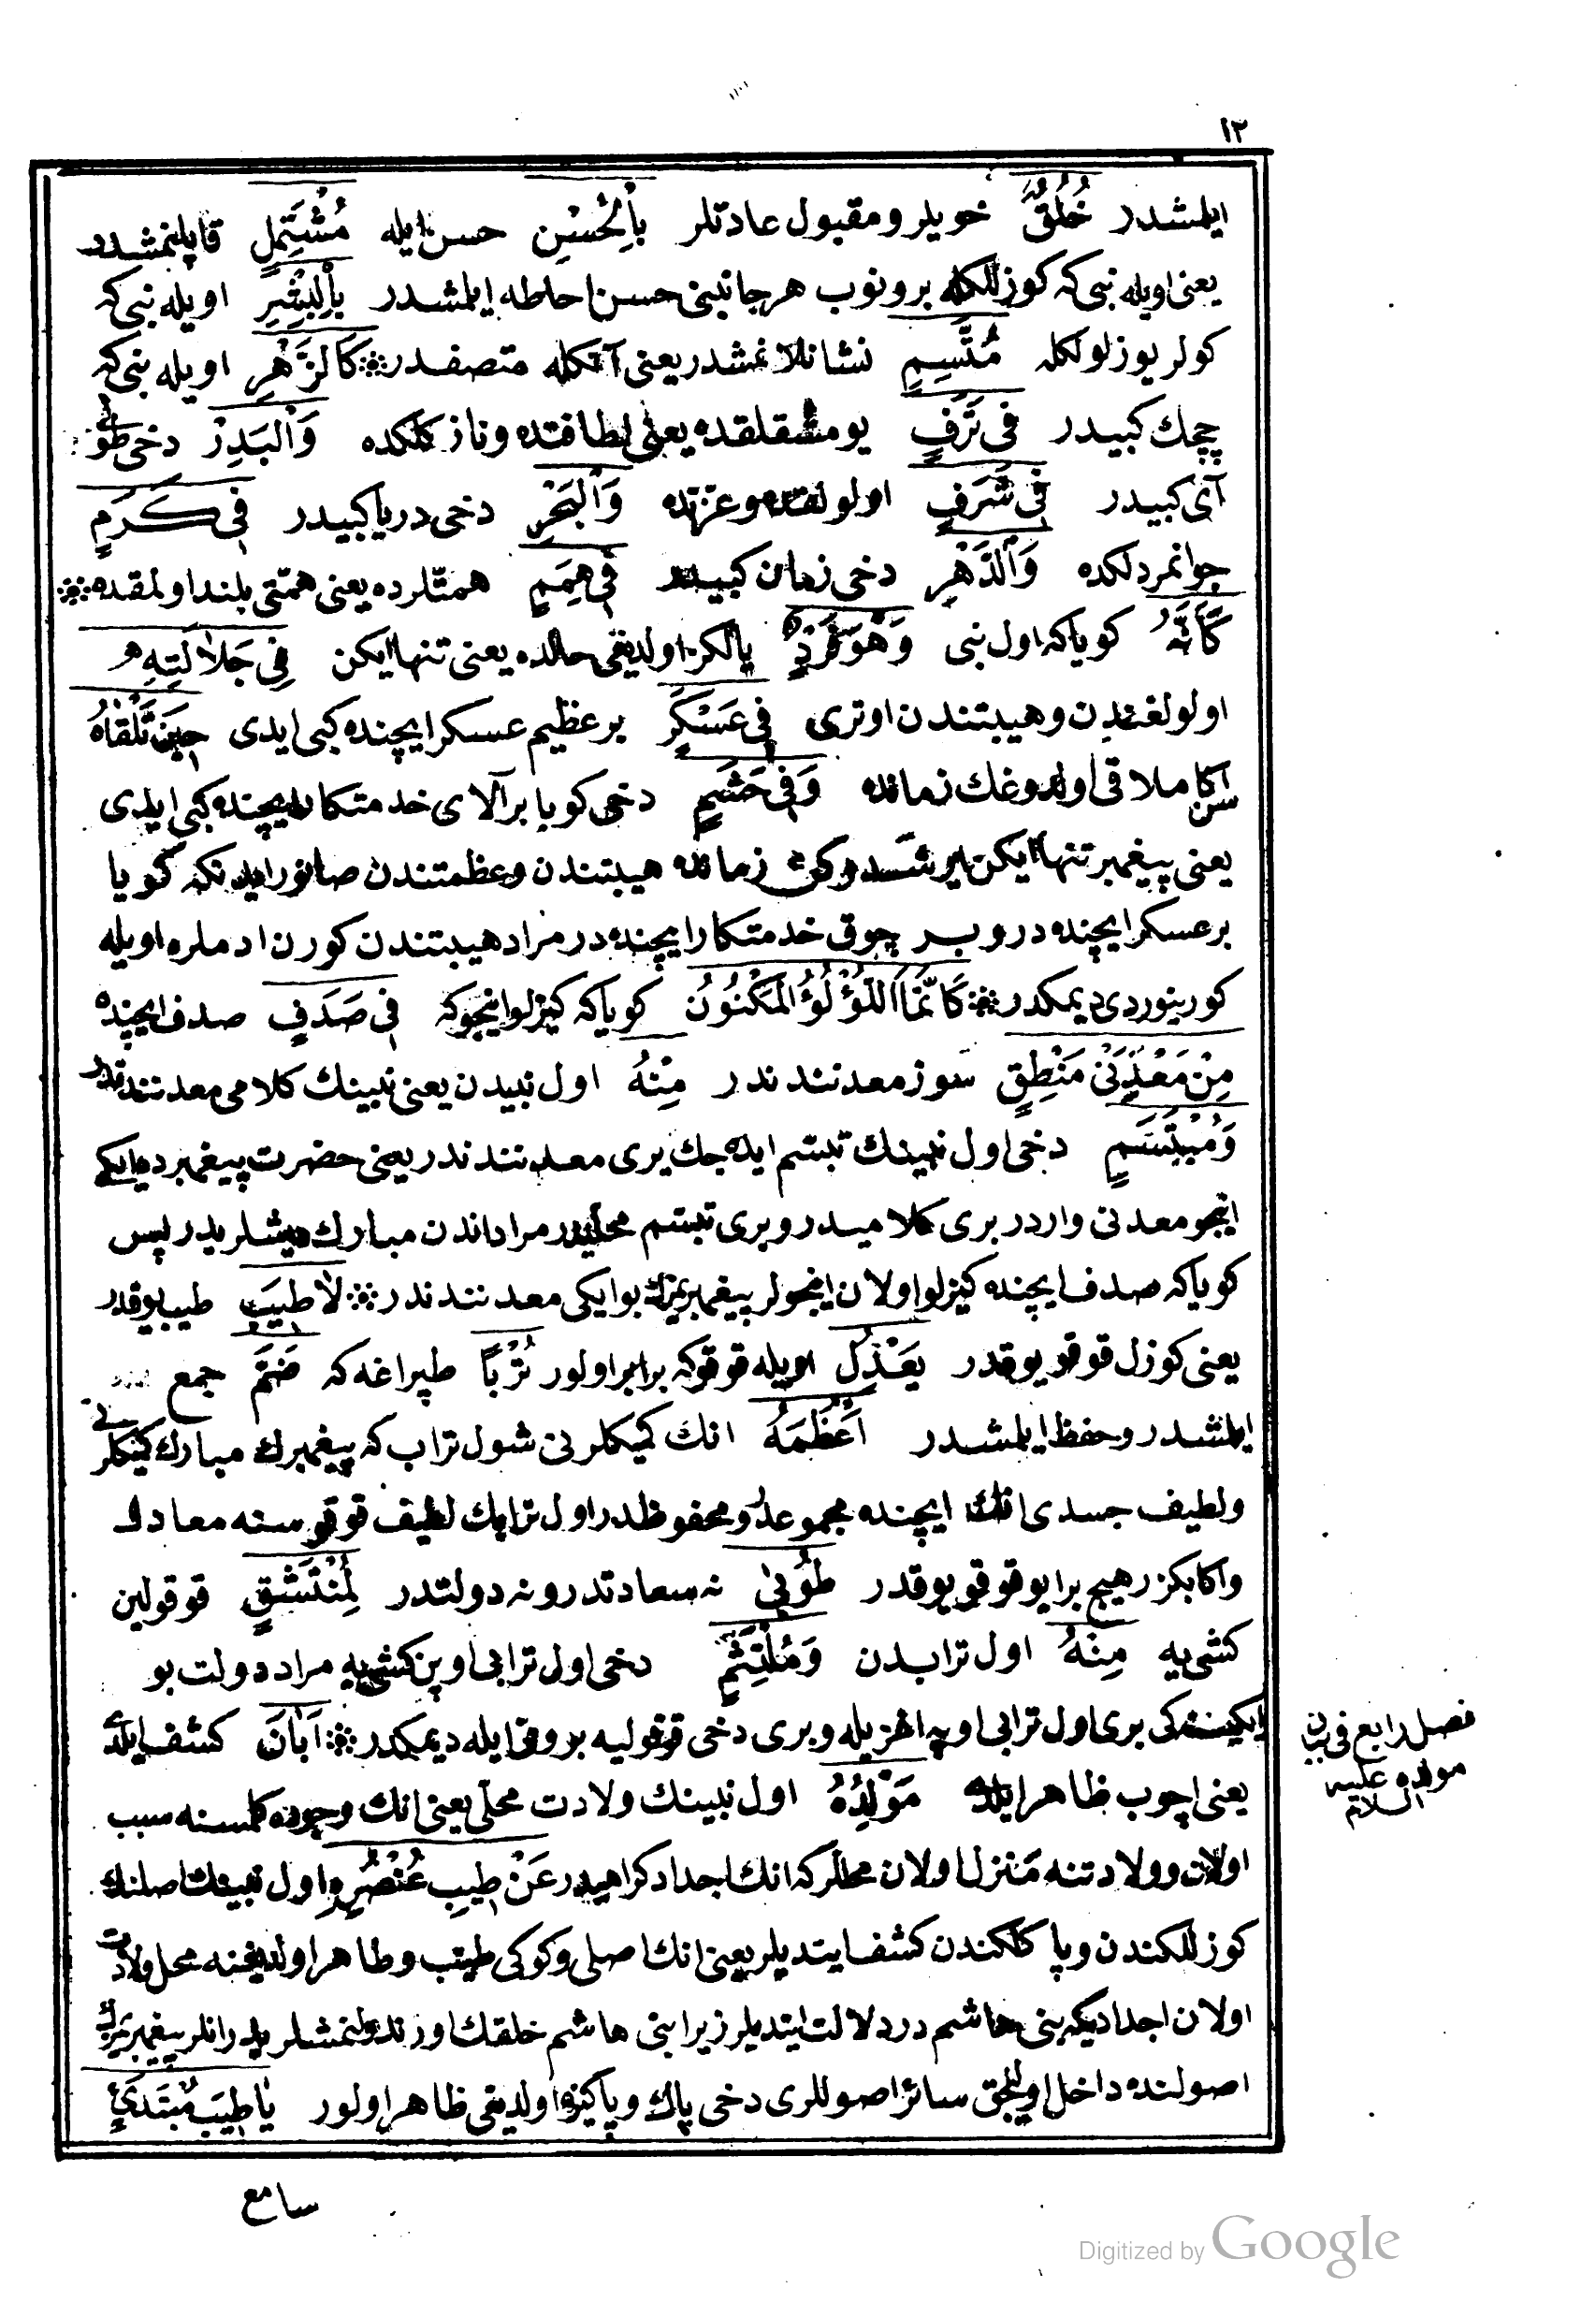 ١٢
ايلمشدر خُلُقٌ خويلر و مقبول عادتلر بِالْحُسْنِ حسن ايله مُشْتَمِلٍ قاپلنمشدر
يعنى اويله نبى كه كوزللكله برونوب هر جانبنى حسن احاطه ايلمشدر بِالْبِشْرِ اويله نبى كه
كولر يوزلولكله مُتَّسِمٍ نشانلانمشدر يعنى آنكله متصفدر ⁘ كَالزَّهْرِ اويله نبى كه
چچك كبيدر فِى تَرَفٍ يومشقلقده يعنى لطافتده و نازكلكده وَالْبَدْرِ دخى طولى
آى كبيدر فِى شَرَفٍ اولولقده و عزتده وَالْبَحْرِ دخى دريا كبيدر فِى كَرَمٍ
جوانمردلكده وَالدَّهْرِ دخى زمان كبيدر فِى هِمَمٍ همتلرده يعنى همتى بلند اولمقده ⁘
كَأَنَّهُ كوياكه اول نبى وَهْوَ فَرْدٌ يالكز اولديغى حالده يعنى تنها ايكن فِى جَلَالَتِهِ
اولولغندن و هيبتندن اوترى فِى عَسْكَرٍ بر عظيم عسكر ايچنده كبى ايدى حِينَ تَلْقَاهُ
سن اكا ملاقى اولدوغك زمانده وَفِى حَشَمٍ دخى كويا بر آلاى خدمتكار ايچنده كبى ايدى
يعنى پيغمبر تنها ايكن ايرشدوكك زمانده هيبتندن و عظمتندن صانورايدك كه كويا
بر عسكر ايچنده در و بر چوق خدمتكار ايچنده در مراد هيبتندن كورن ادملره اويله
كورينوردى ديمكدر ⁘ كَأَنَّمَا اللُّؤْلُؤُ الْمَكْنُونُ كوياكه كيزلو اينجوكه فِى صَدَفٍ صدف ايچنده
مِنْ مَعْدِنَىْ مَنْطِقٍ سوز معدنندندر مِنْهُ اول نبيدن يعنى نبينك كلامى معدنندندر
وَمُبْتَسَمٍ دخى اول نبينك تبسم ايده جك يرى معدنندندر يعنى حضرت پيغمبرده ايكى
اينجو معدنى واردر برى كلاميدر و برى تبسم محليدر مراد اندن مبارك ديشلريدر پس
كوياكه صدف ايچنده كيزلو اولان اينجولر پيغمبريمزك بو ايكى معدنندندر ⁘ لَا طِيبَ طيب يوقدر
يعنى كوزل قوقو يوقدر يَعْدِلُ اويله قوقوكه برابر اولور تُرْبًا طپراغه كه ضَمَّ جمع
ايلمشدر و حفظ ايلمشدر أَعْظُمَهُ انك كيكلرنى شول تراب كه پيغمبرك مبارك كيكلرى
و لطيف جسدى انك ايچنده مجموعدر و محفوظدر اول ترابك لطيف قوقوسنه معادل
و اكا بكزر هيچ بر ايو قوقو يوقدر طُوبَىٰ نه سعادتدر و نه دولتدر لِمُنْتَشِقٍ قوقولين
كشى يه مِنْهُ اول ترابدن وَمُلْتَثِمٍ دخى اول ترابى اوپن كشى يه مراد دولت بو
ايكيسنه كى برى اول ترابى اوپه اغزيله و برى دخى قوقوليه برونى ايله ديمكدر ⁘ أَبَانَ كشف ايلدى
يعنى اچوب ظاهر ايلدى مَوْلِدُهُ اول نبينك ولادت محلى يعنى انك وجوده كلمسنه سبب
اولان و ولادتنه منزل اولان محللر كه انك اجداد كراميدر عَنْ طِيبِ عُنْصُرِهِ اول نبينك اصلنك
كوزللكندن و پاكلكندن كشف ايتديلر يعنى انك اصلى و كوكى طيب و طاهر اولديغنه محل ولادت
اولان اجداديكه بنى هاشم در دلالت ايتديلر زيرا بنى هاشم خلقك اورندولنمشلريدر انلر پيغمبريمزك
اصولنده داخل اوليجق سائر اصوللرى دخى پاك و پاكيزه اولديغى ظاهر اولور يَا طِيبَ مُبْتَدَئٍ
فصل رابع فى بيان
مولده عليه
السلام
سامع
Digitized by Google